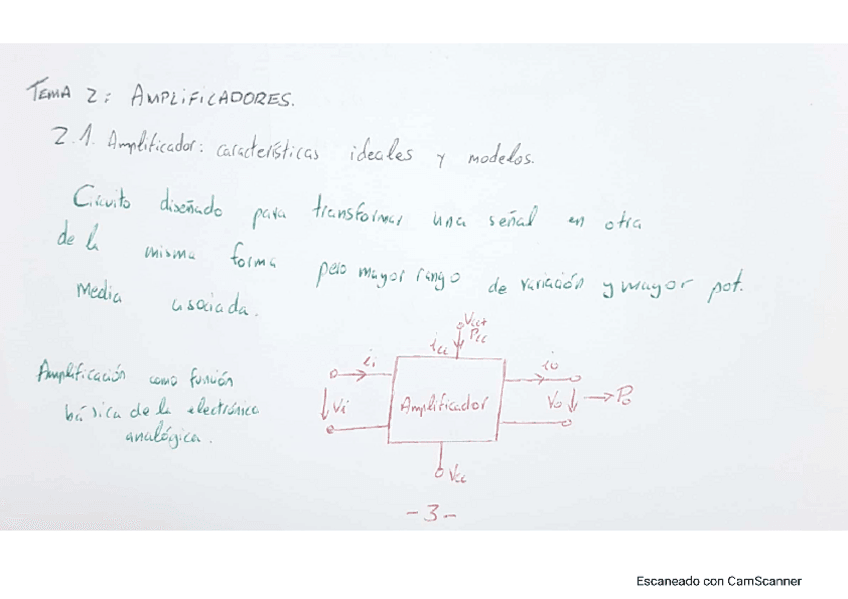 TEMA 2: AMPLIFICADORES.
2.1. Amplificador: características ideales y modelos.
Circuito diseñado para transformar una señal en otra
de la misma forma pero mayor rango de variación y mayor pot.
Media asociada.
Amplificación como función
básica de la electrónica
analógica.
Vcc+
Pcc
icc
ii
io
Vi
Amplificador
Vo
Po
Vcc
-3-
Escaneado con CamScanner